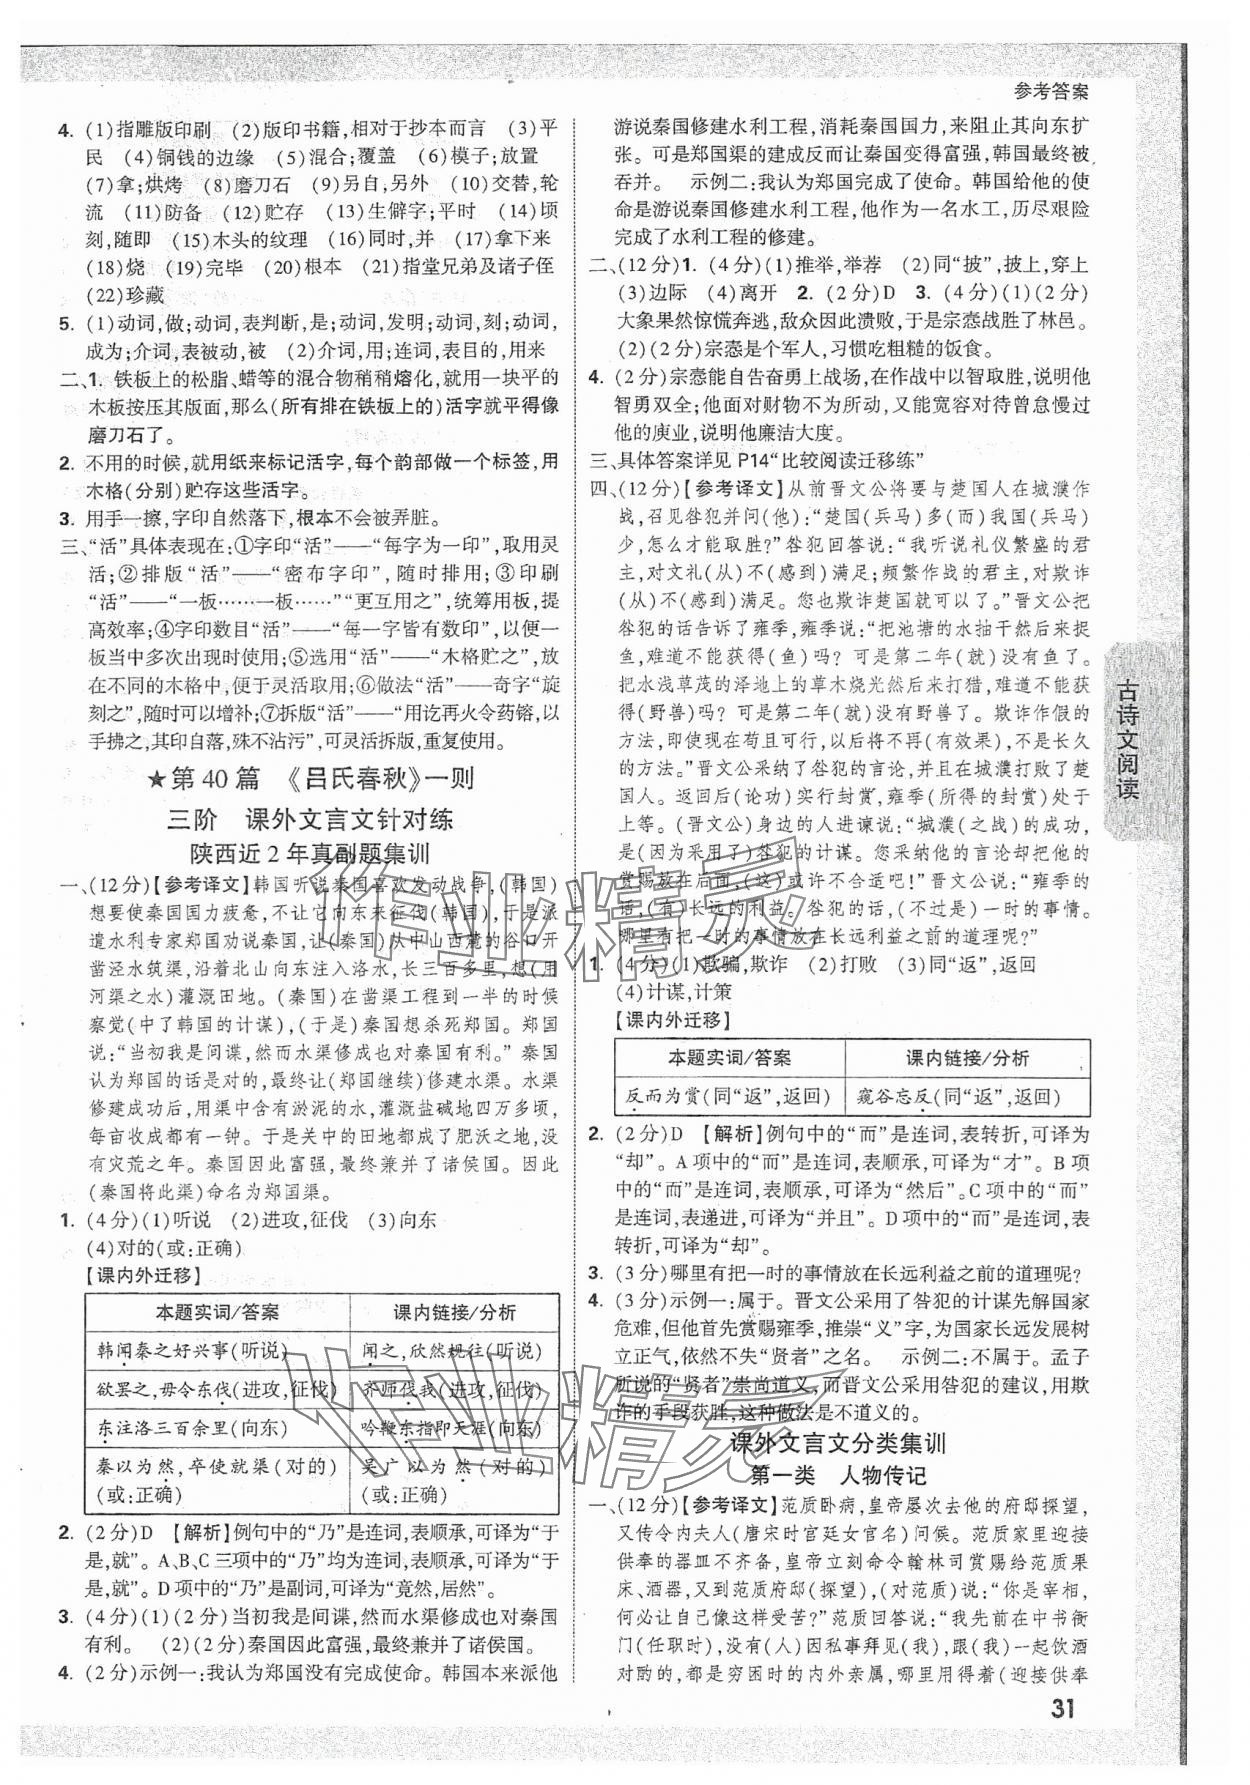 参考答案
4. (1)指雕版印刷　(2)版印书籍,相对于抄本而言　(3)平
民　(4)铜钱的边缘　(5)混合;覆盖　(6)模子;放置
(7)拿;烘烤　(8)磨刀石　(9)另自,另外　(10)交替,轮
流　(11)防备　(12)贮存　(13)生僻字;平时　(14)顷
刻,随即　(15)木头的纹理　(16)同时,并　(17)拿下来
(18)烧　(19)完毕　(20)根本　(21)指堂兄弟及诸子侄
(22)珍藏
5. (1)动词,做;动词,表判断,是;动词,发明;动词,刻;动词,
成为;介词,表被动,被　(2)介词,用;连词,表目的,用来
二、1. 铁板上的松脂、蜡等的混合物稍稍熔化,就用一块平的
木板按压其版面,那么(所有排在铁板上的)活字就平得像
磨刀石了。
2. 不用的时候,就用纸来标记活字,每个韵部做一个标签,用
木格(分别)贮存这些活字。
3. 用手一擦,字印自然落下,根本不会被弄脏。
三、“活”具体表现在:①字印“活”——“每字为一印”,取用灵
活;②排版“活”——“密布字印”,随时排用;③印刷
“活”——“一板……一板……”“更互用之”,统筹用板,提
高效率;④字印数目“活”——“每一字皆有数印”,以便一
板当中多次出现时使用;⑤选用“活”——“木格贮之”,放
在不同的木格中,便于灵活取用;⑥做法“活”——奇字“旋
刻之”,随时可以增补;⑦拆版“活”——“用讫再火令药镕,以
手拂之,其印自落,殊不沾污”,可灵活拆版,重复使用。
★第 40 篇　《吕氏春秋》一则
三阶　课外文言文针对练
陕西近 2 年真副题集训
一、(12 分)【参考译文】韩国听说秦国喜欢发动战争,(韩国)
想要使秦国国力疲惫,不让它向东来征伐(韩国),于是派
遣水利专家郑国劝说秦国,让(秦国)从中山西麓的谷口开
凿泾水筑渠,沿着北山向东注入洛水,长三百多里,想(用
河渠之水)灌溉田地。(秦国)在凿渠工程到一半的时候
察觉(中了韩国的计谋),(于是)秦国想杀死郑国。郑国
说:“当初我是间谍,然而水渠修成也对秦国有利。”秦国
认为郑国的话是对的,最终让(郑国继续)修建水渠。水渠
修建成功后,用渠中含有淤泥的水,灌溉盐碱地四万多顷,
每亩收成都有一钟。于是关中的田地都成了肥沃之地,没
有灾荒之年。秦国因此富强,最终兼并了诸侯国。因此
(秦国将此渠)命名为郑国渠。
1. (4 分)(1)听说　(2)进攻,征伐　(3)向东
(4)对的(或:正确)
【课内外迁移】
本题实词/答案　课内链接/分析
韩闻秦之好兴事(听说)　闻之,欣然规往(听说)
欲罢之,毋令东伐(进攻,征伐)　齐师伐我(进攻,征伐)
东注洛三百余里(向东)　吟鞭东指即天涯(向东)
秦以为然,卒使就渠(对的)(或:正确)　吴广以为然(对的)(或:正确)
2. (2 分)D　【解析】例句中的“乃”是连词,表顺承,可译为“于
是,就”。A、B、C 三项中的“乃”均为连词,表顺承,可译为“于
是,就”。D 项中的“乃”是副词,可译为“竟然,居然”。
3. (4 分)(1)(2 分)当初我是间谍,然而水渠修成也对秦国
有利。　(2)(2 分)秦国因此富强,最终兼并了诸侯国。
4. (2 分)示例一:我认为郑国没有完成使命。韩国本来派他
游说秦国修建水利工程,消耗秦国国力,来阻止其向东扩
张。可是郑国渠的建成反而让秦国变得富强,韩国最终被
吞并。　示例二:我认为郑国完成了使命。韩国给他的使
命是游说秦国修建水利工程,他作为一名水工,历尽艰险
完成了水利工程的修建。
二、(12 分)1. (4 分)(1)推举,举荐　(2)同“披”,披上,穿上
(3)边际　(4)离开　2. (2 分)D　3. (4 分)(1)(2 分)
大象果然惊慌奔逃,敌众因此溃败,于是宗悫战胜了林邑。
(2)(2 分)宗悫是个军人,习惯吃粗糙的饭食。
4. (2 分)宗悫能自告奋勇上战场,在作战中以智取胜,说明他
智勇双全;他面对财物不为所动,又能宽容对待曾怠慢过
他的庾业,说明他廉洁大度。
三、具体答案详见 P14“比较阅读迁移练”
四、(12 分)【参考译文】从前晋文公将要与楚国人在城濮作
战,召见咎犯并问(他):“楚国(兵马)多(而)我国(兵马)
少,怎么才能取胜?”咎犯回答说:“我听说礼仪繁盛的君
主,对文礼(从)不(感到)满足;频繁作战的君主,对欺诈
(从)不(感到)满足。您也欺诈楚国就可以了。”晋文公把
咎犯的话告诉了雍季,雍季说:“把池塘的水抽干然后来捉
鱼,难道不能获得(鱼)吗?可是第二年(就)没有鱼了。
把水浅草茂的泽地上的草木烧光然后来打猎,难道不能获
得(野兽)吗?可是第二年(就)没有野兽了。欺诈作假的
方法,即使现在苟且可以利用,以后不再(有效果),不是长久
的方法。”晋文公采纳了咎犯的言论,并在城濮打败了楚
国人。返回后(论功)实行封赏,雍季(所得的封赏)居于
上等。(晋文公)身边的人进谏说:“城濮(之战)的成功,
是(因为采用了)咎犯的计谋。您采纳他的言论却在封
赏赐时放在后面,(这)或许不合适吧!”晋文公说:“雍季的
话,(有)长远的利益。咎犯的话,(不过是)一时的事情。
哪里有把一时的事情放在长远利益之前的道理呢?”
1. (4 分)(1)欺骗,欺诈　(2)打败　(3)同“返”,返回
(4)计谋,计策
【课内外迁移】
本题实词/答案　课内链接/分析
反而为赏(同“返”,返回)　窥谷忘反(同“返”,返回)
2. (2 分)D　【解析】例句中的“而”是连词,表转折,可译为
“却”。A 项中的“而”是连词,表顺承,可译为“才”。B 项
中的“而”是连词,表顺承,可译为“然后”。C 项中的“而”
是连词,表递进,可译为“并且”。D 项中的“而”是连词,表
转折,可译为“却”。
3. (3 分)哪里有把一时的事情放在长远利益之前的道理呢?
4. (3 分)示例一:属于。晋文公采用了咎犯的计谋先解国家
危难,但他首先赏赐雍季,推崇“义”字,为国家长远发展树
立正气,依然不失“贤者”之名。　示例二:不属于。孟子
所说的“贤者”崇尚道义,而晋文公采用咎犯的建议,用欺
诈的手段获胜,这种做法是不道义的。
课外文言文分类集训
第一类　人物传记
一、(12 分)【参考译文】范质卧病,皇帝屡次去他的府邸探望,
又传令内夫人(唐宋时宫廷女官名)问候。范质家里迎接
供奉的器皿不齐备,皇帝立刻命令翰林司赏赐给范质果
床、酒器,又到范质府邸(探望),(对范质)说:“你是宰相,
何必让自己像这样受苦?”范质回答说:“我先前在中书衙
门(任职时),没有(人)因私事拜见(我),跟(我)一起饮酒
对酌的,都是穷困时的内外亲属,哪里用得着(迎接供奉
古诗文阅读
31
作业精灵
作业精灵